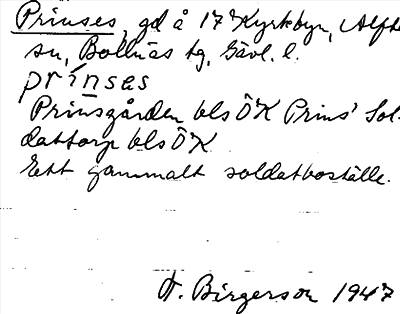 Prinses, gd å 17² Kyrkbyn, Alfta
sn, Bollnäs tg, Gävl. l.
prinses
Prinsgården bls ÖK Prins' Sol-
dattorp bls ÖK
Ett gammalt soldatboställe.
F. Birgerson 1947